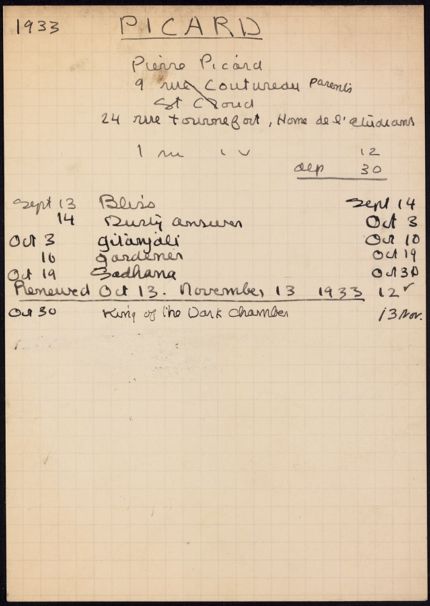 1933 PICARD
Pierre Picard
9 rue Coutureau Parents
St Cloud
24 rue Tournefort, Home de l'etudiants
1 m 1 v 12
dep 30
Sept 13 Bliss Sept 14
14 Dusty answer Oct 3
Oct 3 Gitanjali Oct 10
10 Gardener Oct 19
Oct 19 Sadhana Oct 30
Renewed Oct 13. November 13 1933 12 ✓
Oct 30 King of the Dark Chamber 13 Nov.